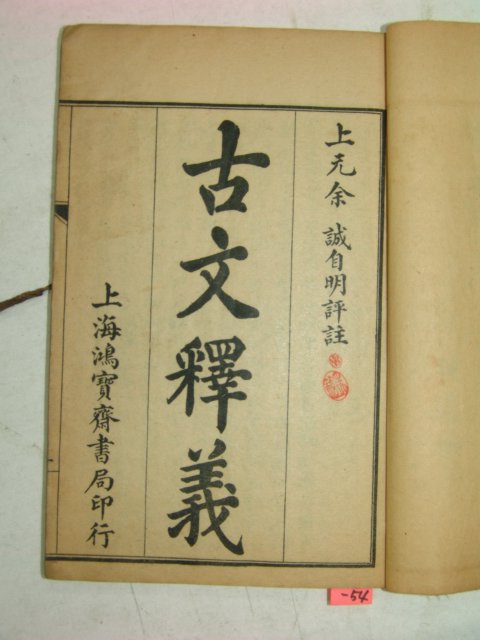 上元余 誠自明評註
古文釋義
上海鴻寶齋書局印行
-54